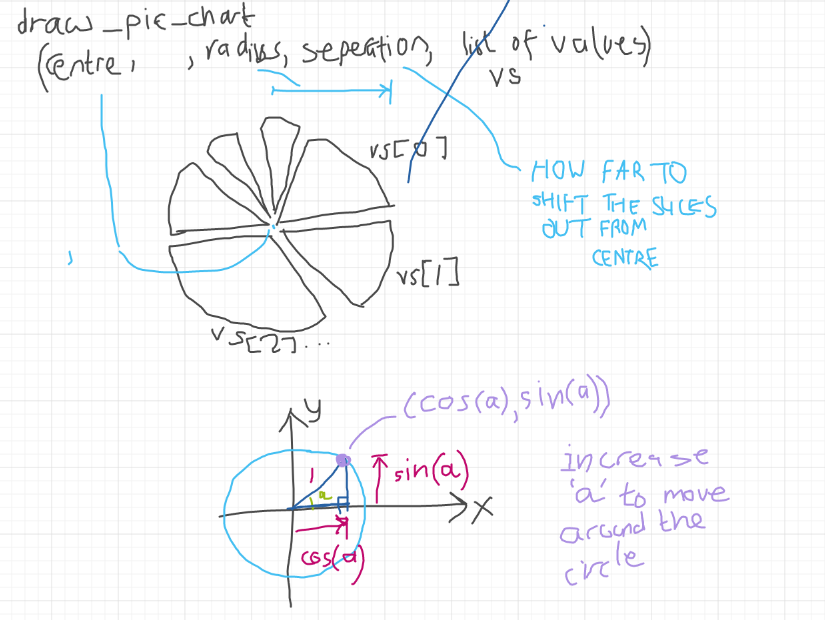 draw_pie_chart
(centre, , radius, seperation, list of values)
vs
vs[0]
HOW FAR TO
SHIFT THE SLICES
OUT FROM
CENTRE
,
vs[1]
vs[2]...
y
(cos(a), sin(a))
1
a
sin(a)
x
cos(a)
increase
'a' to move
around the
circle